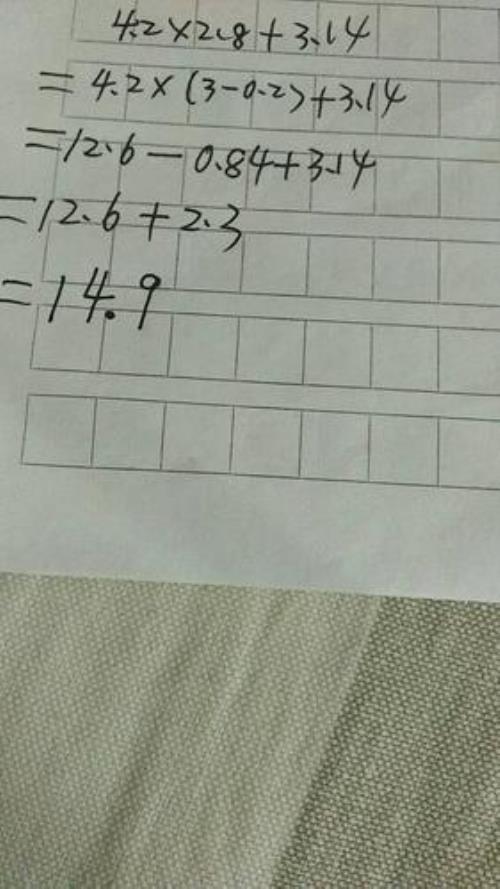 4.2×2.8+3.14
=4.2×(3-0.2)+3.14
=12.6-0.84+3.14
=12.6+2.3
=14.9